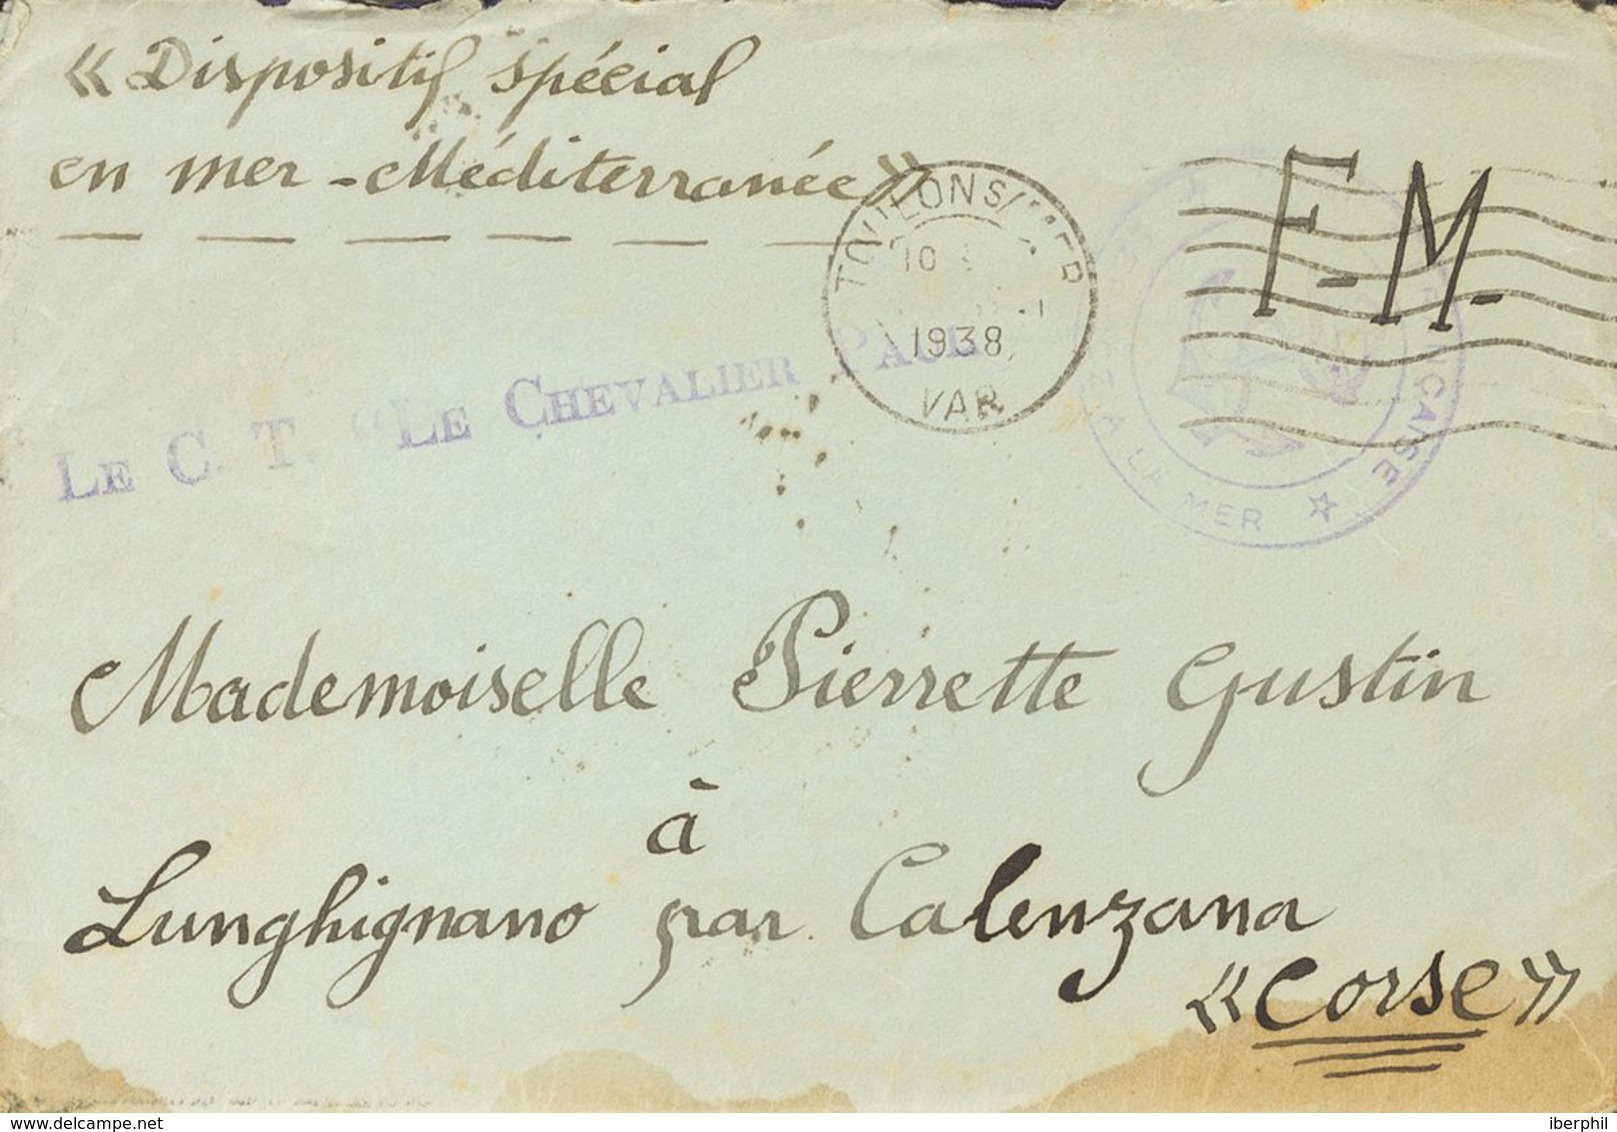 « Dispositif spécial
en mer - Méditerranée »
F. M.
TOULON S/ MER
10
1938
VAR
LE C. T. “LE CHEVALIER PAUL”
À LA MER ☆
Mademoiselle Pierrette Gustin
à
Lunghignano par Calenzana
« Corse »
delcampe.net
iberphil